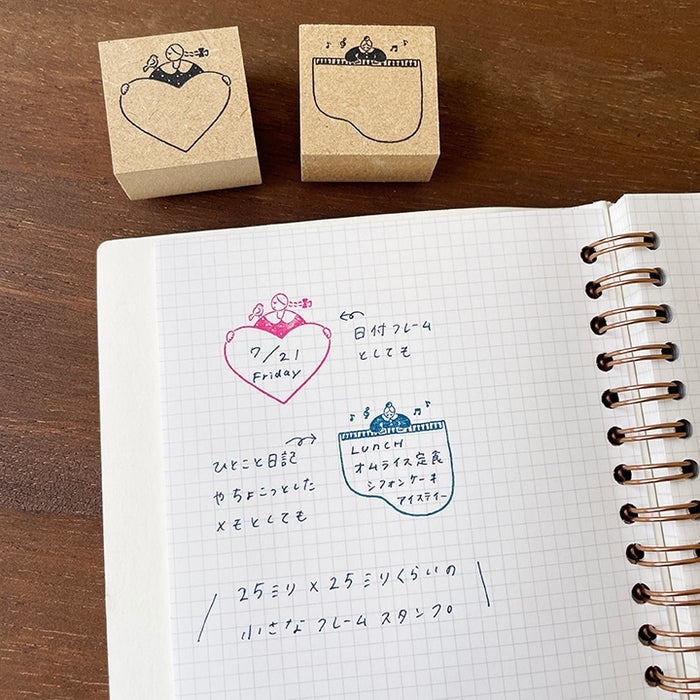 7/21
Friday
日付フレーム
としても
LUNCH
オムライス定食
シフォンケーキ
アイスティー
ひとこと日記
やちょこっとした
メモとしても
25ミリ×25ミリくらいの
小さなフレームスタンプ